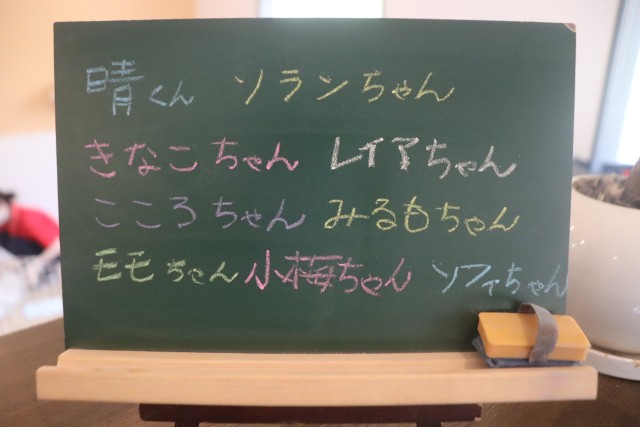 晴くん ソランちゃん
きなこちゃん レイアちゃん
こころちゃん みるもちゃん
モモちゃん 小梅ちゃん ソフィちゃん